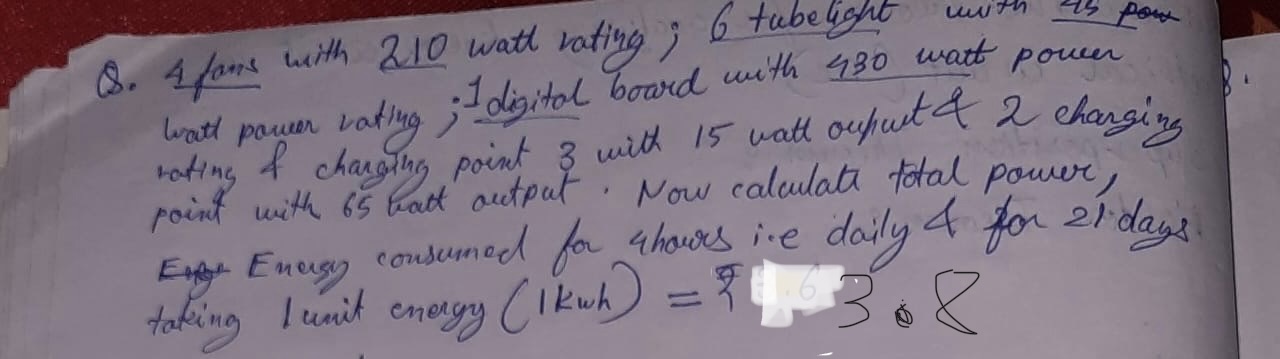 Q. 4 fans with 210 watt rating ; 6 tubelight with 45 pow
watt power rating ; 1 digital board with 430 watt power
rating & charging point 3 with 15 watt ouput & 2 charging
point with 65 watt output . Now calculate total power,
Energy consumed for 4 hours i.e daily & for 21 days
taking 1 unit energy (1 kwh) = ₹ 3.8